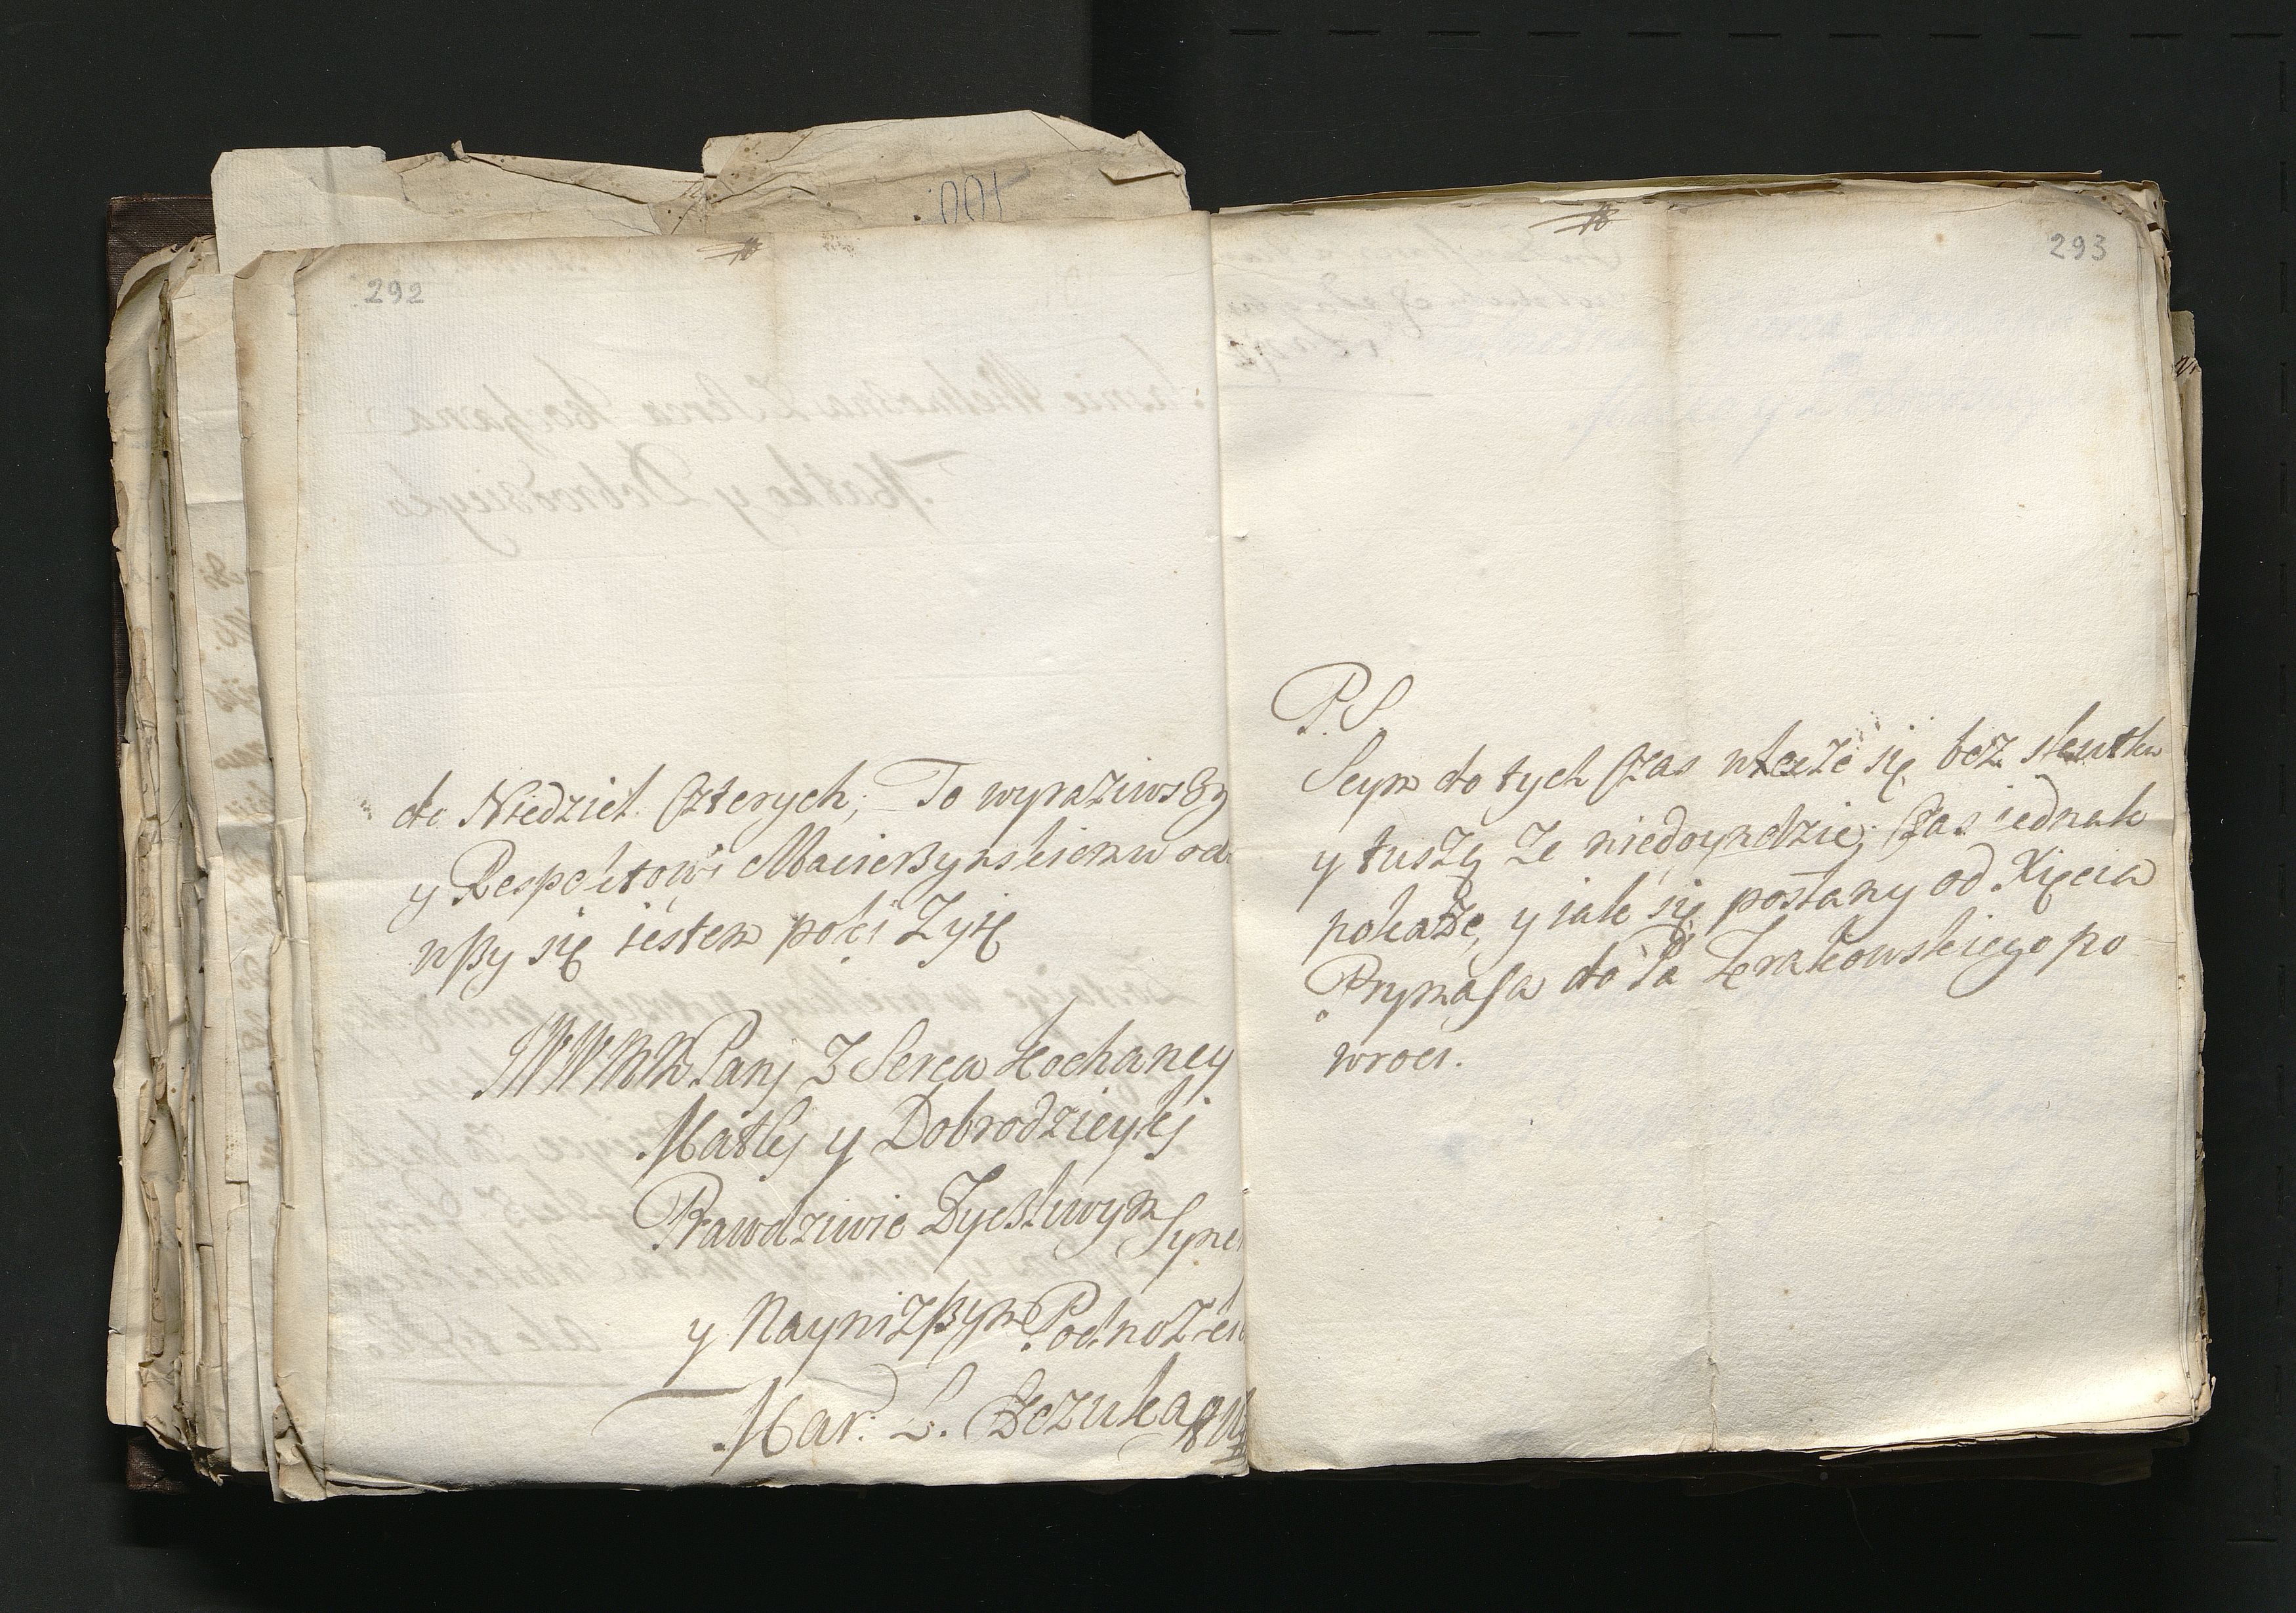 292
do Niedziel Czterych; To wyraziwszy
y Respektowi Macierzynskiemu od
wszy się iestem poki Zyię
JWWMM Panj Z Serca kochaney
Matkj y Dobrodzieykj
Prawdziwie Zyczliwym Syne
y Nayniższym Podnożk
Mar:
293
P.S.
Seym do tych Czas wlecze się bez skutku
y tuszę Ze niedoyndzie; Czas iednak
pokaże, y iak się posłany od Xięcia
Prymasa do Pa Krakowskiego po
wroci.